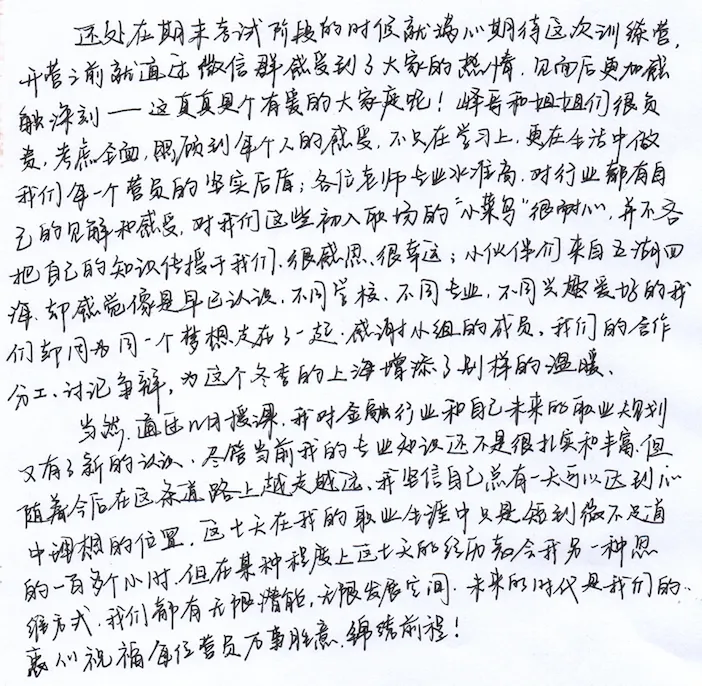 还处在期末考试阶段的时候就满心期待这次训练营,
开营之前就通过微信群感受到了大家的热情,见面后更加感
触深刻——这真真是个有爱的大家庭呢!怿哥和姐姐们很负
责,考虑全面,照顾到每个人的感受,不只在学习上,更在生活中做
我们每一个营员的坚实后盾;各位老师专业水准高,对行业都有自
己的见解和感受,对我们这些初入职场的“小菜鸟”很耐心,并不吝
把自己的知识传授于我们,很感恩、很幸运;小伙伴们来自五湖四
海,却感觉像是早已认识,不同学校、不同专业,不同兴趣爱好的我
们却因为同一个梦想走在了一起,感谢小组的成员,我们的合作
分工、讨论争辩,为这个冬季的上海增添了别样的温暖、
当然,通过n日授课,我对金融行业和自己未来的职业规划
又有了新的认识、尽管当前我的专业知识还不是很扎实和丰富,但
随着今后在这条道路上越走越远,我坚信自己总有一天可以达到心
中理想的位置,这七天在我的职业生涯中只是短到微不足道
的一百多个小时,但在某种程度上这七天的经历教会我另一种思
维方式,我们都有无限潜能,无限发展空间.未来的时代是我们的.
衷心祝福每位营员万事胜意,锦绣前程!